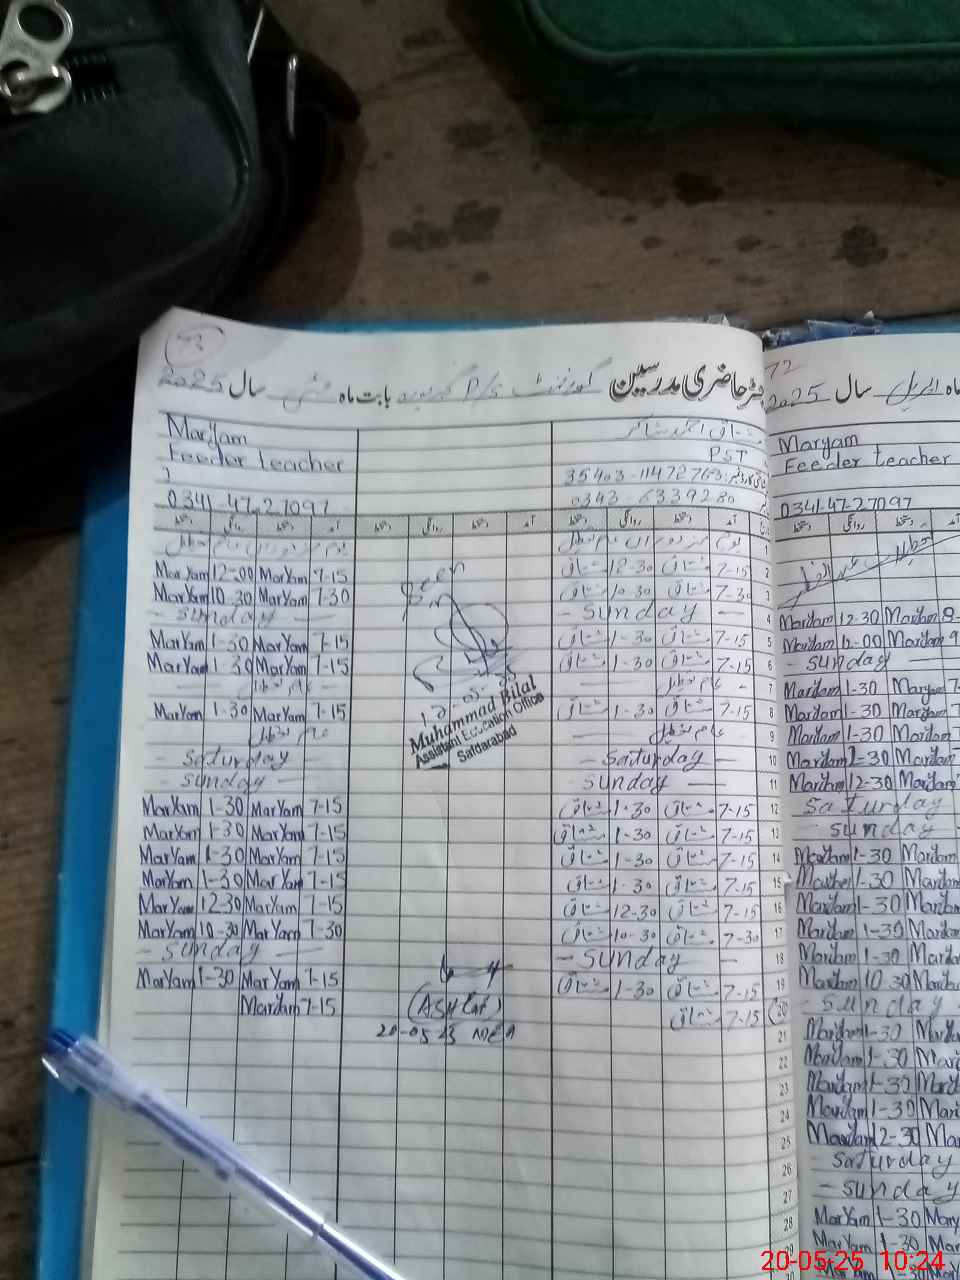 73
رجسٹر حاضری مدرسین گورنمنٹ P/S بابت ماہ مئی سال 2025
مشتاق احمد شاکر
Maryam
PST
Feeder teacher
35403-11472763
0343-6339280
0341-47-27097
آمد دستخط روانگی دستخط آمد دستخط روانگی دستخط آمد دستخط روانگی دستخط
1 یوم مزدوراں عام تعطیل یوم مزدوراں عام تعطیل
2 7-15 مشتاق 12-30 مشتاق 7-15 Maryam 12-00 Maryam
3 7-30 مشتاق 10-30 مشتاق 7-30 Maryam 10-30 Maryam
4 - Sunday - - Sunday -
5 7-15 مشتاق 1-30 مشتاق 7-15 Maryam 1-30 Maryam
6 7-15 مشتاق 1-30 مشتاق 7-15 Maryam 1-30 Maryam
7 عام تعطیل عام تعطیل
8 7-15 مشتاق 1-30 مشتاق 7-15 Maryam 1-30 Maryam
9 عام تعطیل عام تعطیل
10 - Saturday - - Saturday -
11 Sunday - - Sunday -
12 7-15 مشتاق 1-30 مشتاق 7-15 Maryam 1-30 Maryam
13 7-15 مشتاق 1-30 مشتاق 7-15 Maryam 1-30 Maryam
14 7-15 مشتاق 1-30 مشتاق 7-15 Maryam 1-30 Maryam
15 7-15 مشتاق 1-30 مشتاق 7-15 Maryam 1-30 Maryam
16 7-15 مشتاق 12-30 مشتاق 7-15 Maryam 12-30 Maryam
17 7-30 مشتاق 10-30 مشتاق 7-30 Maryam 10-30 Maryam
18 - Sunday - - Sunday -
19 7-15 مشتاق 1-30 مشتاق 7-15 Maryam 1-30 Maryam
20 7-15 مشتاق 7-15 Maryam
21
22
23
24
25
26
27
28
29
Seen
12-05-25
Muhammad Bilal
Assistant Education Office
Safdarabad
(Ashfaq)
20-05-25 MEA
72
ماہ اپریل سال 2025
Maryam
Feeder teacher
0341-47-27097
دستخط روانگی دستخط آمد
Maryam 12-30 Maryam 8-
Maryam 12-00 Maryam 9
- Sunday -
Maryam 1-30 Maryam 7-
Maryam 1-30 Maryam 7
Maryam 1-30 Maryam
Maryam 1-30 Maryam
Maryam 12-30 Maryam
Saturday
- Sunday
Maryam 1-30 Maryam
Maryam 1-30 Maryam
Maryam 1-30 Maryam
Maryam 1-30 Maryam
Maryam 1-30 Maryam
Maryam 10-30 Maryam
- Sunday
Maryam 1-30
Maryam 1-30
Maryam 1-30
Maryam 1-30
Maryam 12-30
Saturday
- Sunday
Maryam 1-30
Maryam 1-30
Maryam 1-30
20-05-25 10:24